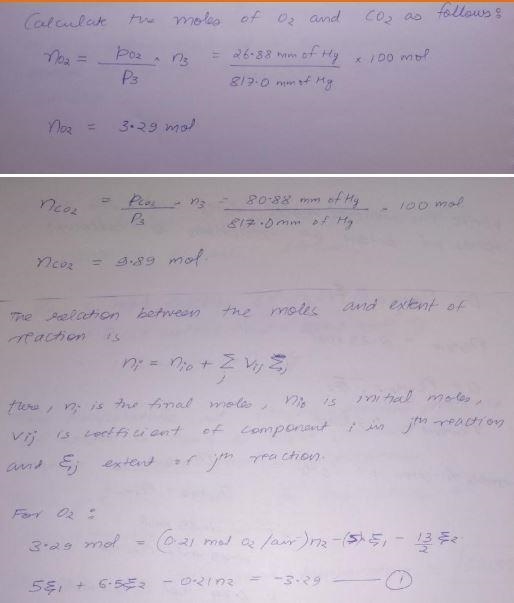 Calculate the moles of O2 and CO2 as follows:
nO2 = pO2/P3 · n3 = 26.88 mm of Hg/817.0 mm of Hg × 100 mol
nO2 = 3.29 mol
nCO2 = PCO2/P3 · n3 = 80.88 mm of Hg/817.0 mm of Hg · 100 mol
nCO2 = 9.89 mol.
The relation between the moles and extent of
reaction is
ni = nio + Σj Vij ξj
Here, ni is the final moles, nio is initial moles,
Vij is coefficient of component i in jth reaction
and ξj extent of jth reaction.
For O2 :
3.29 mol = (0.21 mol O2/air) n2 - (5) ξ1 - 13/2 ξ2
5ξ1 + 6.5ξ2 - 0.21n2 = -3.29 — (1)